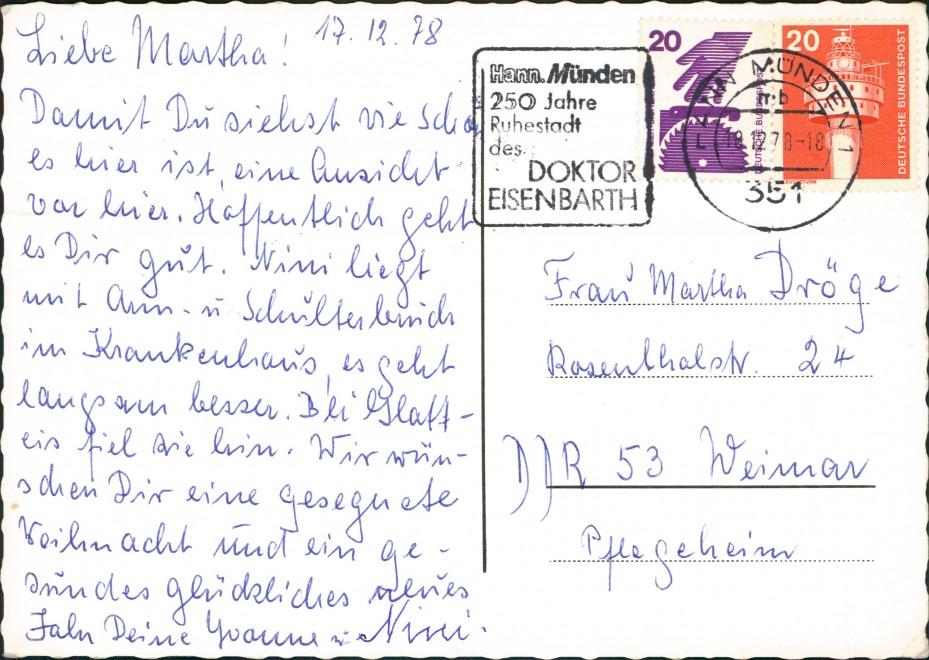 17.12.78
Liebe Martha!
Damit Du siehst wie schön
es hier ist, eine Ansicht
von hier. Hoffentlich geht
es Dir gut. Nini liegt
mit Arm- u Schulterbruch
im Krankenhaus, es geht
langsam besser. Bei Glatt-
eis fiel sie hin. Wir wün-
schen Dir eine gesegnete
Weihnacht und ein ge-
sundes glückliches neues
Jahr Deine Yvonne u. Nini.
Hann. Münden
250 Jahre
Ruhestadt
des
DOKTOR
EISENBARTH
20
20
DEUTSCHE BUNDESPOST
DEUTSCHE BUNDESPOST
MÜNDEN 1
mb
18.12.78-18
351
Frau Martha Dröge
Rosenthalstr. 24
DDR 53 Weimar
Pflegeheim